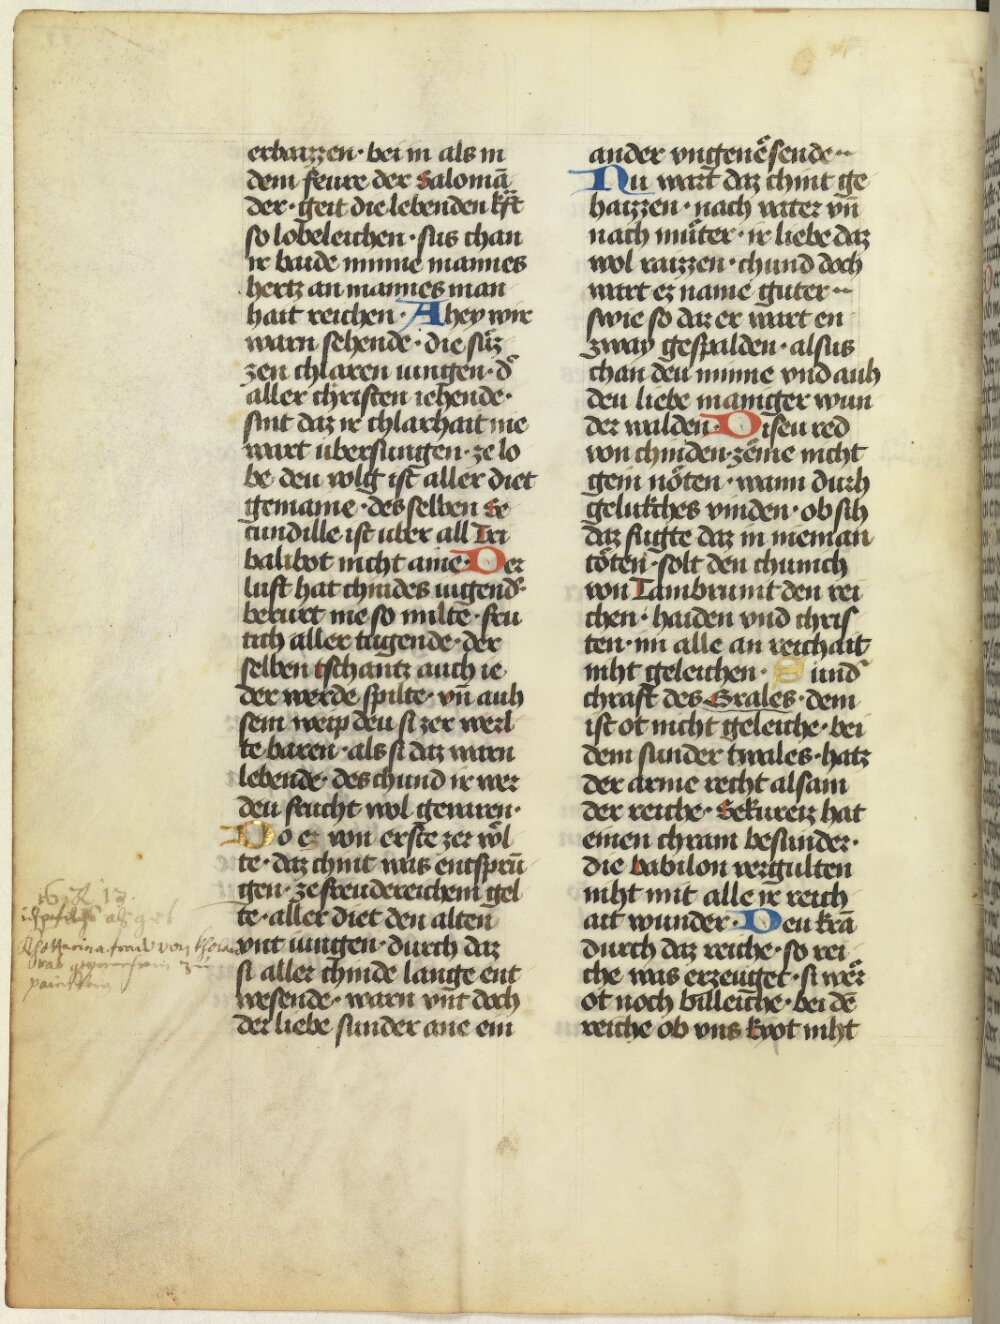 erbarzen· bei in als in
dem feure der Salomā
der· geit die lebenden kͣft
so lobeleichen· sus chan
ir baide minne mannes
hertz an mannes man
hait reichen· Ahey wir
warn sehende· die süͤz
zen chlaren iungen· dͦ
aller christen iehende·
sint daz ir chlarhait nie
wart übersungen· ze lo
be den volg ist aller diet
gemaine· des selben Se
cundille ist uber all Tri
balibot nicht aine· Der
lust hat chindes iugend·
beruret nie so milte· fru
tich aller tugende· der
selben tschantz auch ie
der werde spilte· vn̄ auh
sein weip deu si zer werl
te baren· als si daz warn
lebende· des chund ir wer
deu feucht wol gewaren·
Do er von erste zer wͦl
te· daz chint was entsprū
gen· ze freudereichem gel
te· aller diet den alten
vnt iungen· durch daz
si aller chinde lange ent
wesende· warn vnt doch
der liebe sunder ane ein
16 R 13
Khatterina fraw von
ander vngenesende··
Nu wart daz chint ge
haizzen· nach vater vn̄
nach muͤter· ir liebe daz
wol raizzen· chund doch
wart ez name guter··
swie so daz er wart en
zway gespalden· alsus
chan deu minne vnd auh
deu liebe maniger wun
der walden· Diseu red
von chinden· zeme nicht
gein noͤten· wann durh
gelukches vinden· ob sih
daz fugte daz in nieman
toͤten· solt den chunich
von Tambrunit den rei
chen· haiden vnd chris
ten· im alle an reichait
niht geleichen· Sund
chraft des Grales· dem
ist ot nicht geleiche· bei
dem sunder twales· hatz
der arme recht alsam
der reiche· Sekureiz hat
einen chram besunder·
die babilon vergulten
niht mit alle ir reich
ait wunder· Den krā
durch daz reiche· so rei
che was erzeuget· si wer
ot noch billeiche· bei dē
reiche ob vns kyot niht